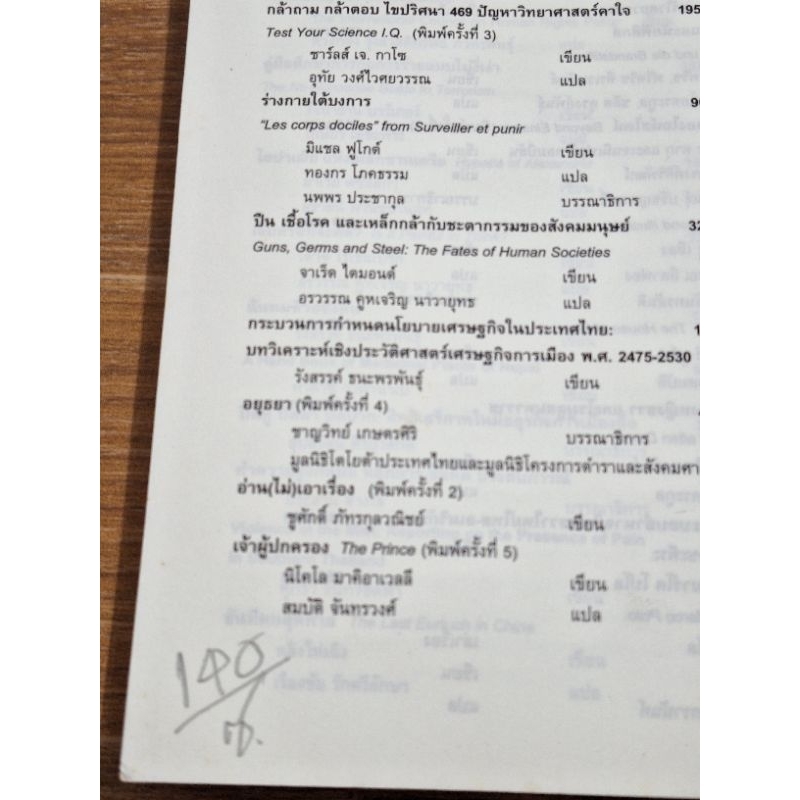 กล้าถาม กล้าตอบ ไขปริศนา 469 ปัญหาวิทยาศาสตร์คาใจ 195
Test Your Science I.Q. (พิมพ์ครั้งที่ 3)
ชาร์ลส์ เจ. กาโซ เขียน
อุทัย วงศ์ไวศยวรรณ แปล
ร่างกายใต้บงการ 90
"Les corps dociles" from Surveiller et punir
มิแชล ฟูโกต์ เขียน
ทองกร โภคธรรม แปล
นพพร ประชากุล บรรณาธิการ
ปืน เชื้อโรค และเหล็กกล้ากับชะตากรรมของสังคมมนุษย์ 32
Guns, Germs and Steel: The Fates of Human Societies
จาเร็ด ไดมอนด์ เขียน
อรวรรณ คูหเจริญ นาวายุทธ แปล
กระบวนการกำหนดนโยบายเศรษฐกิจในประเทศไทย: 1
บทวิเคราะห์เชิงประวัติศาสตร์เศรษฐกิจการเมือง พ.ศ. 2475-2530
รังสรรค์ ธนะพรพันธุ์ เขียน
อยุธยา (พิมพ์ครั้งที่ 4)
ชาญวิทย์ เกษตรศิริ บรรณาธิการ
มูลนิธิโตโยต้าประเทศไทยและมูลนิธิโครงการตำราและสังคมศา
อ่าน(ไม่)เอาเรื่อง (พิมพ์ครั้งที่ 2)
ชูศักดิ์ ภัทรกุลวณิชย์ เขียน
เจ้าผู้ปกครอง The Prince (พิมพ์ครั้งที่ 5)
นิโคโล มาคิอาเวลลี เขียน
สมบัติ จันทรวงศ์ แปล
140